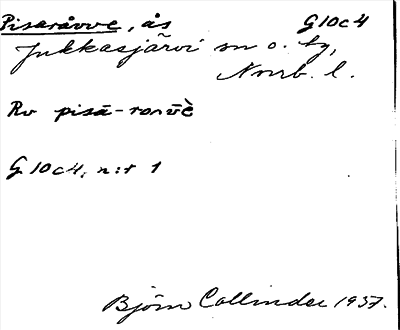 Pisaråvve, ås G10c4
Jukkasjärvi sn o. tg,
Norrb. l.
Rv pisā-roɒv̄è
G 10c4, n:r 1
Björn Collinder 1937.